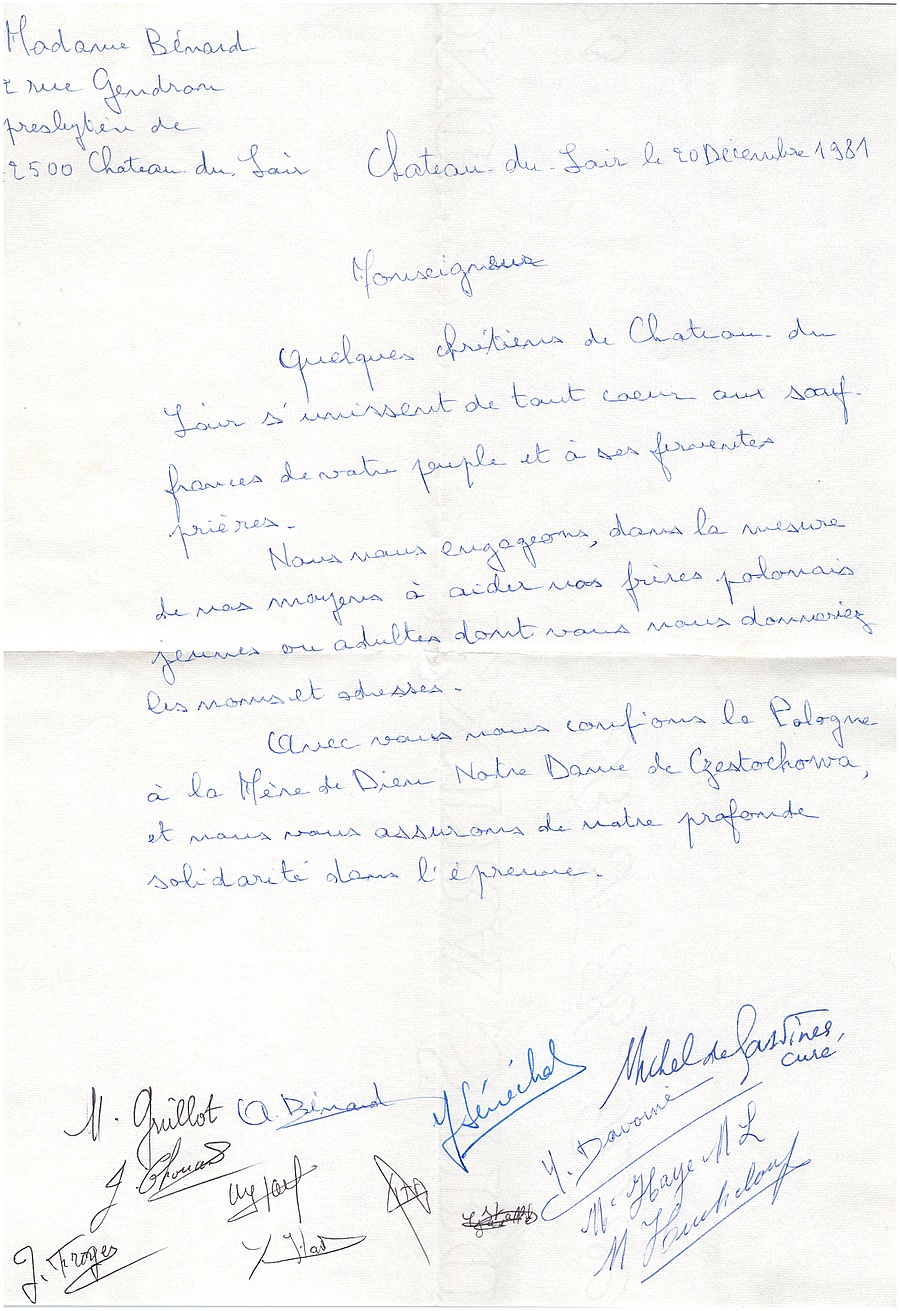 Madame Bénard
2 rue Gendron
presbytère de
2500 Chateau du Loir
Chateau du Loir le 20 Décembre 1981
Monseigneur
Quelques chrétiens de Chateau du
Loir s'unissent de tout coeur aux souf-
frances de votre peuple et à ses ferventes
prières.
Nous nous engageons, dans la mesure
de nos moyens à aider nos frères polonais
jeunes ou adultes dont vous nous donneriez
les noms et adresses.
Avec vous nous confions la Pologne
à la Mère de Dieu Notre Dame de Czestochowa,
et nous vous assurons de notre profonde
solidarité dans l'épreuve.
Michel de
curé
M. Guillot
A. Bénard
Y Sénéchal
Y. Davoine
J.
M. Haye M L
M
J. Froges